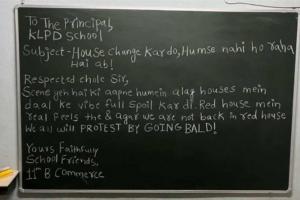 To The Principal,
KLPD School
Subject-House change Kardo, Humse nahi ho raha
Hai ab!
Respected chole Sir,
Scene yeh hai ki aapne humein alag houses mein
daal ke vibe full spoil kar di. Red house mein
real feels the & agar we are not back in red house
We all will PROTEST BY GOING BALD!
Yours Faithfully
School Friends,
11th B Commerce